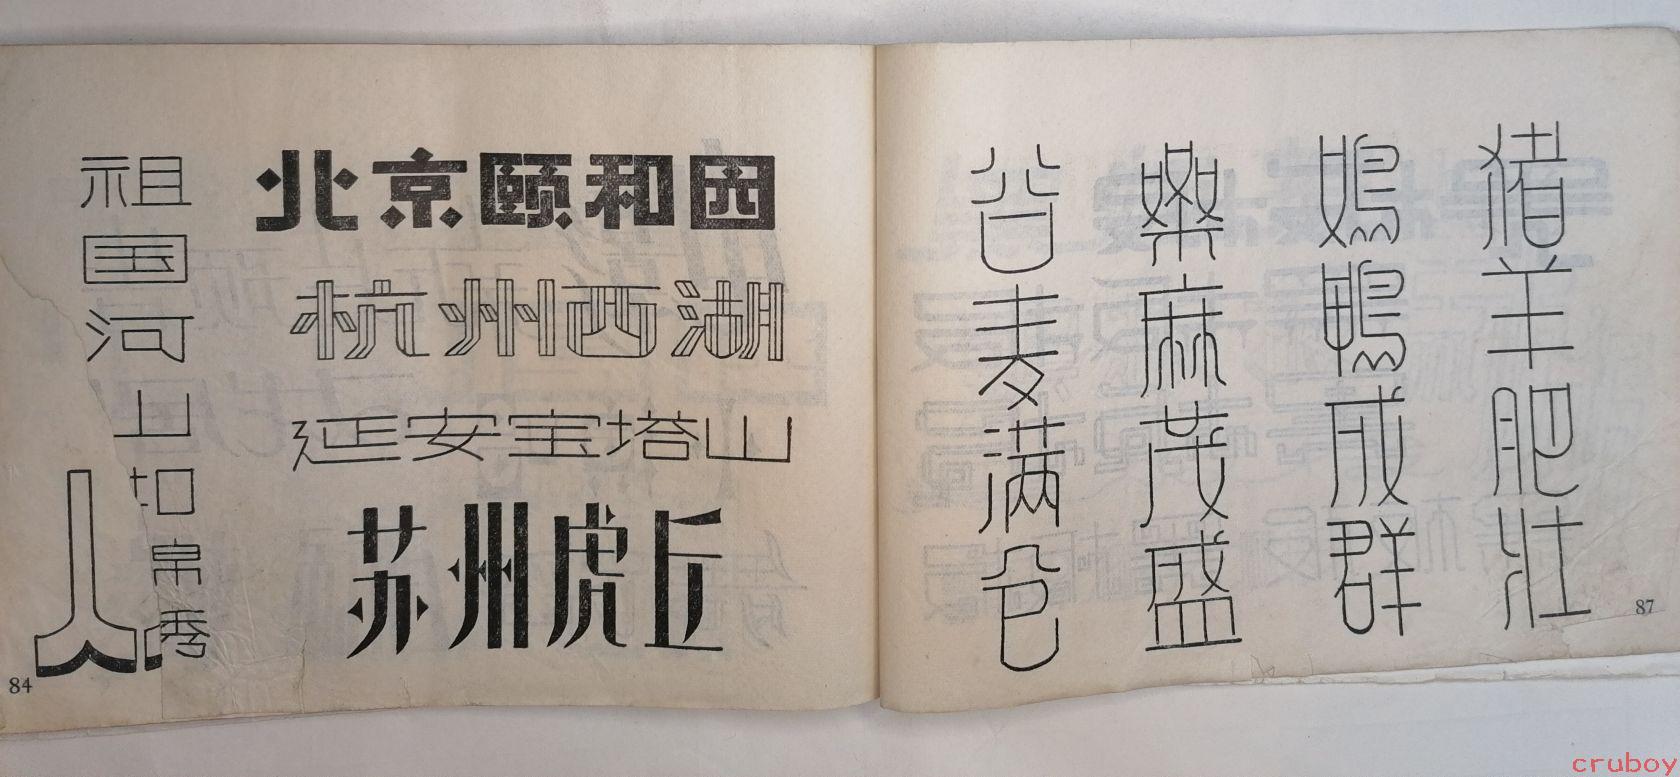 祖国河山如帛秀
北京颐和园
杭州西湖
延安宝塔山
苏州虎丘
84
谷麦满仓
桑麻茂盛
鸡鸭成群
猪羊肥壮
87
cruboy